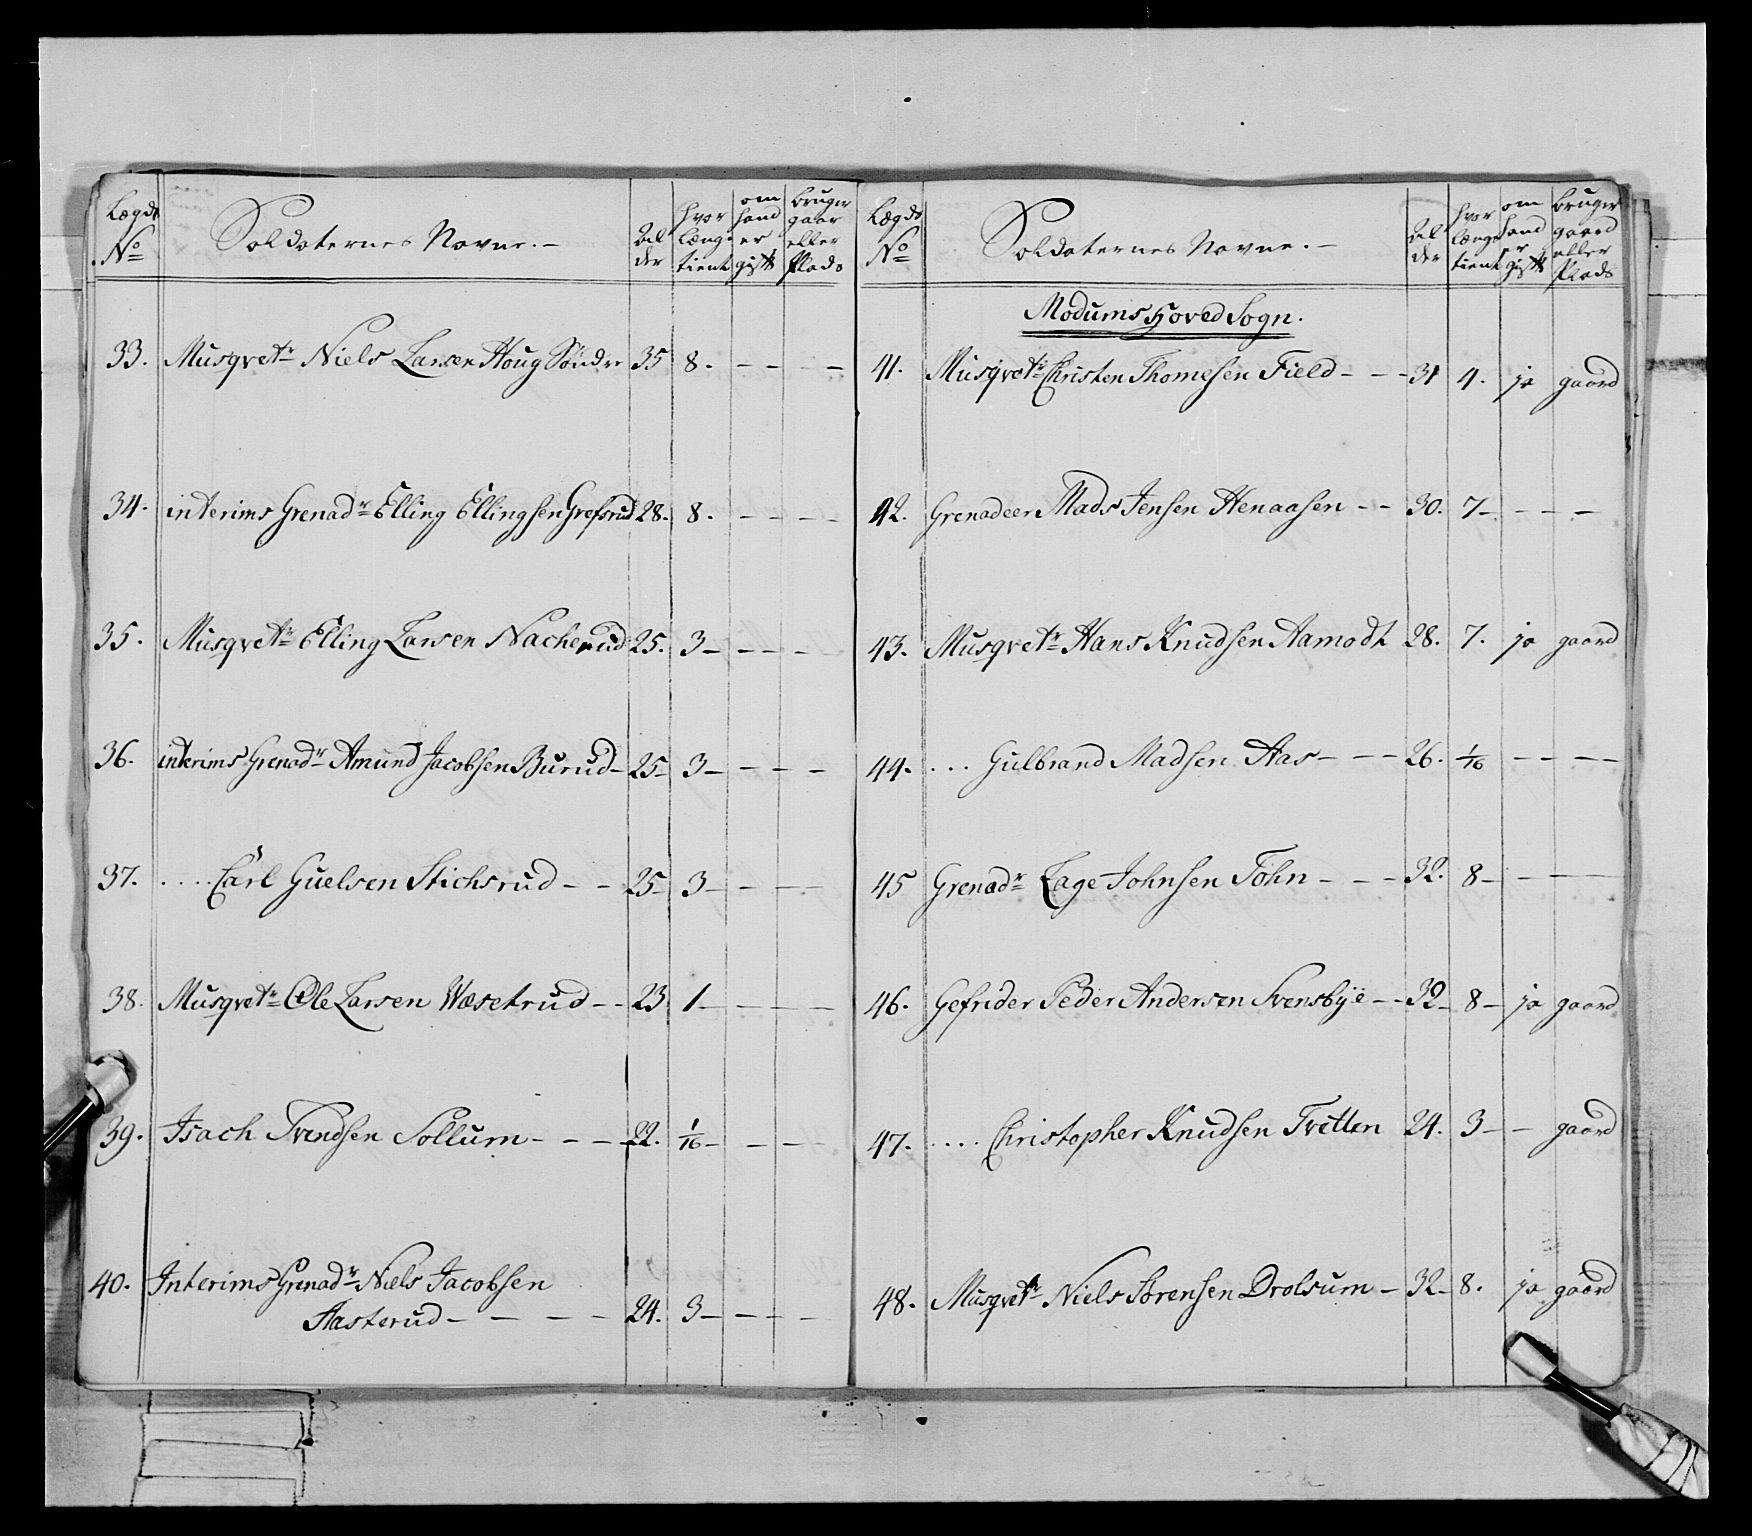 Lægds No Soldaternes Navne.- Alder hvor længe tient om hand er gift bruger gaar eller Plads
33. Musqvetr Niels Larsen Houg Søndre 35 8. - - - -
34. interims Grenadr Elling Ellingsen Grefsrud 28. 8. - - - -
35. Musqvetr Elling Larsen Nacherud 25. 3 - - - -
36. interims Grenadr Amund Jacobsen Burud - 25 - 3 - - - -
37. .... Carl Guelsen Stichsrud - - 25 - 3 - - - -
38. Musqvetr Ole Larsen Wæsetrud - - 23 1 - - - -
39. Isach Svendsen Sollum - - - 22. 1/16 - - - -
40. Interims Grenadr Niels Jacobsen
Aasterud - - - - 24. 3 - - - -
Lægds No Soldaternes Navne.- Alder hvor længe tient om hand er gift bruger gaard eller Plads
Modums Hoved Sogn.
41. Musqvetr Christen Thomesen Field - - - 31 4. ja gaard
42. Grenadeer Mads Jensen Henaasen - - 30. 7 - - - -
43. Musqvetr Hans Knudsen Aamodt 28. 7. ja gaard
44. ... Gulbrand Madsen Aas - - - 26. 1/16 - - - -
45 Grenadr Lage Johnsen Tohn - - - 32. 8 - - -
46. Gefrider Peder Andersen Svensbye - - 32 - 8 - ja gaard
47. .... Christopher Knudsen Tvetten 24. 3 - - gaard
48. Musqvetr Niels Sørensen Drolsum - 32 - 8. ja gaard